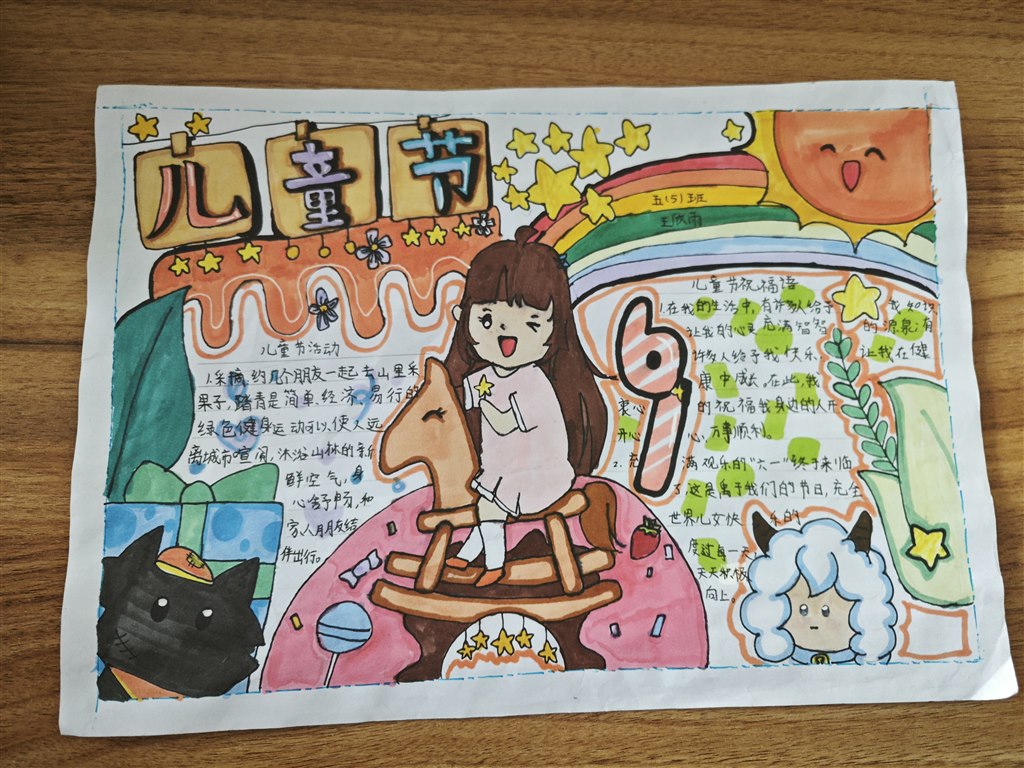 儿童节
五(5)班
王欣雨
儿童节活动
1.采摘,约几个朋友一起去山里采
果子,踏青是简单、经济、易行的
绿色健身运动可以使人远
离城市喧闹,沐浴山林的新
鲜空气,身
心舒畅,和
家人朋友结
伴出行。
61
儿童节祝福语
1.在我的生活中,有许多人给予
我知识
的源泉;有
让我的心灵充满智
许多人给予我快乐,
让我在健
康中成长。在此,我
衷心
的祝福我身边的人开
开心心,万事顺利。
2.充满欢乐的“六一”终于来临
了,这是属于我们的节日,
世界儿女快乐的
度过每一天
天天积极
向上。